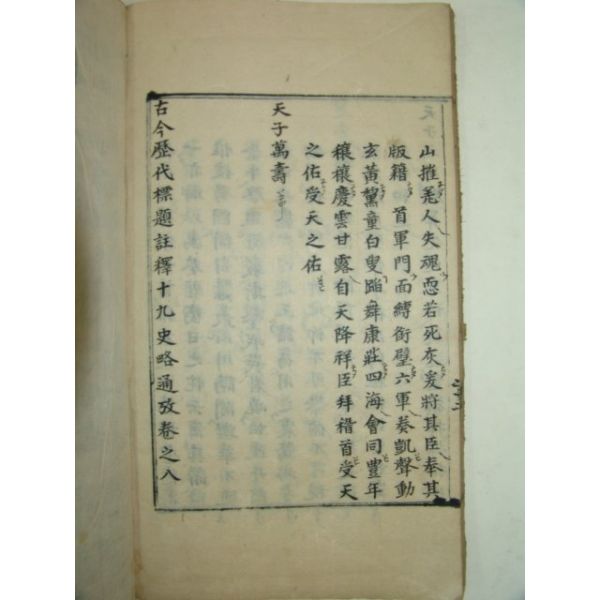 山摧羌人失魂恧若死灰爰將其臣奉其
版籍 首軍門面縛銜璧六軍奏凱聲動
玄黃黧童白叟蹈舞康莊四海會同豊年
穰穰慶雲甘露自天降祥臣拜稽首受天
之佑受天之佑
天子萬壽
古今歷代標題註釋十九史略通攷卷之八